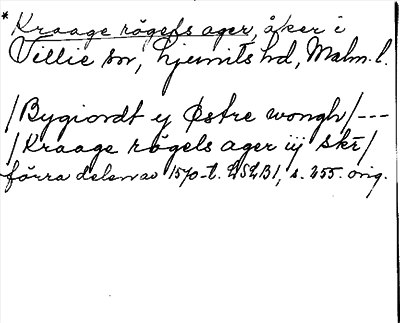 * Kraage rögels ager, åker i
Villie sn, Ljunits hd, Malm. l.
/Bygiordt ej Østre wongh/---
/Kraage rögels ager iij skr/
förra delen av 1570-t. LSLB1, s. 255. orig.